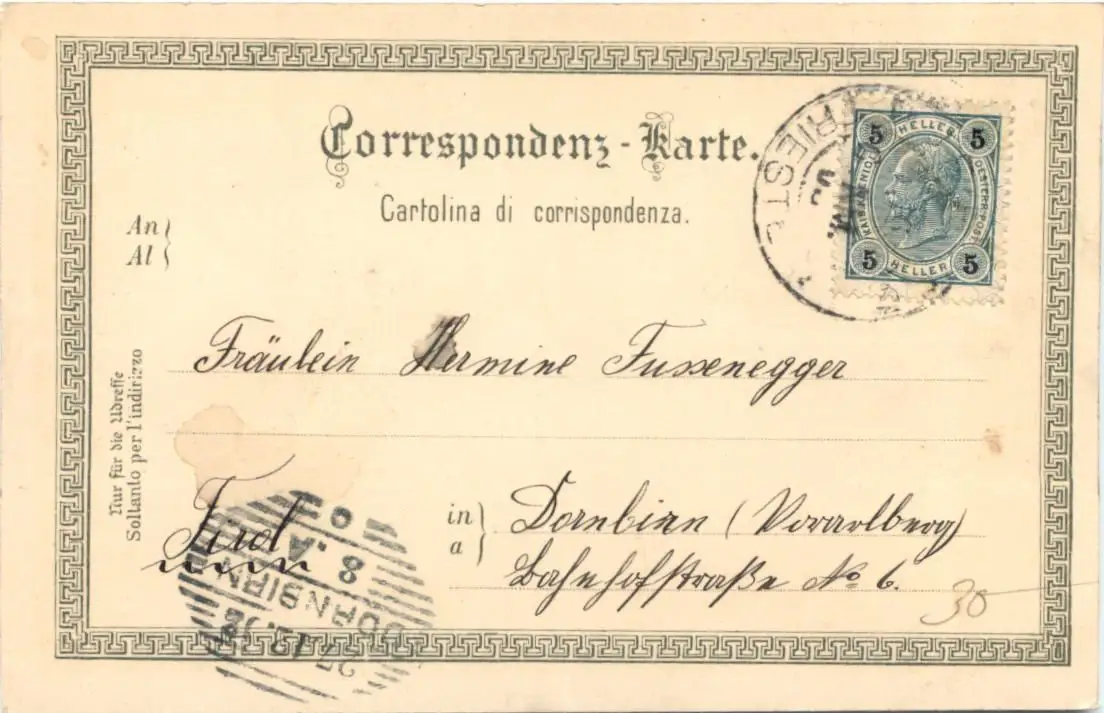 Correspondenz-Karte.
Cartolina di corrispondenza.
An
Al
5 HELLER 5
KAISERL KÖNIGL OESTERR. POST
5 HELLER 5
TRIEST
Fräulein Hermine Fussenegger
Nur für die Adresse
Soltanto per l'indirizzo
Tirol
in
a
Dornbirn (Vorarlberg)
Bahnhofstraße No 6.
30
8. A
DORNBIRN
27.12.02